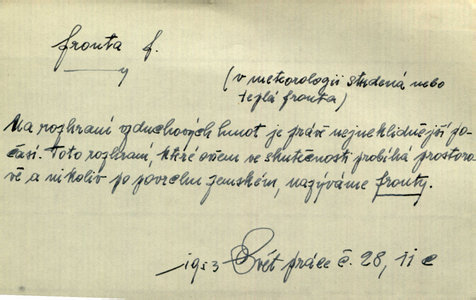 fronta f.
(v meteorologii studená nebo
teplá fronta)
Na rozhraní vzduchových hmot je právě nejneklidnější po-
časí. Toto rozhraní, které ovšem ve skutečnosti probíhá prostoro-
vě a nikoliv po povrchu zemském, nazýváme fronty.
1953 Svět práce č. 28, 11 c